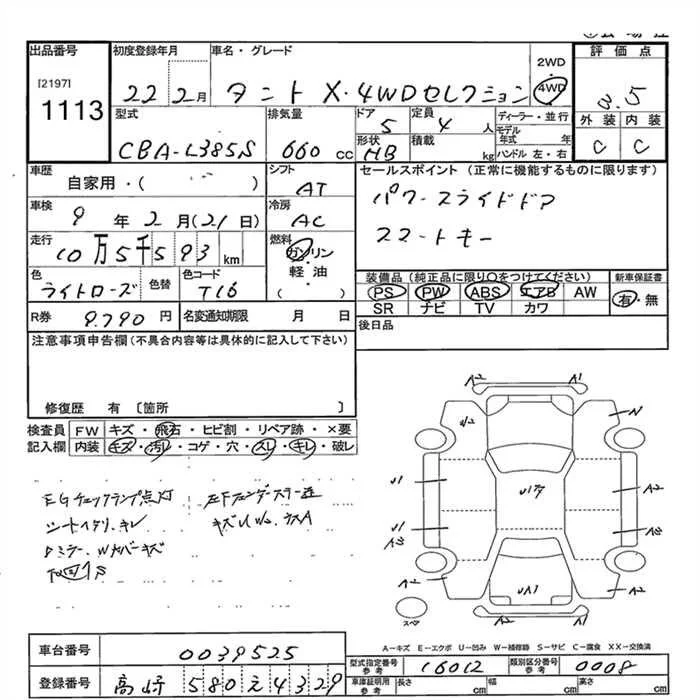 出品番号 初度登録年月 車名・グレード 評価点
[2197] 2WD
1113 22 2月 タント X・4WDセレクション 4WD 3.5
型式 排気量 ドア 5 定員 4人 ディーラー・並行 外装 内装
CBA-L385S 660cc 形状 HB 積載 kg モデル年式 年 ハンドル 左・右 C C
車歴 自家用・( ) シフト AT セールスポイント (正常に機能するものに限ります)
車検 9年2月(21日) 冷房 AC パワースライドドア
走行 10万5千593km 燃料 ガソリン・軽油・( ) スマートキー
色 ライトローズ 色替 色コード T16 装備品(純正品に限り○をつけてください) 新車保証書
PS PW ABS エアB AW 有・無
SR ナビ TV カワ
R券 9.790円 名変通知期限 月 日 後日品
注意事項申告欄(不具合内容等は具体的に記入して下さい)
修復歴 有 〔箇所 〕
検査員 FW キズ・飛石・ヒビ割・リペア跡・×要
記入欄 内装 キズ・汚レ・コゲ・穴・スレ・キレ・破レ
EGチェックランプ点灯
シートヘタリ.キレ
A2 A1
W2 A
U1 A2
U1
A2 A2
A2 A1
スペア
A−キズ E−エクボ U−凹み W−補修跡 S−サビ C−腐食 XX−交換済
車台番号 0039525 型式指定番号 参考 16012 類別区分番号 参考 0008
登録番号 高崎 580 え 4329 車庫証明用 参考 長さ cm 幅 cm 高さ cm